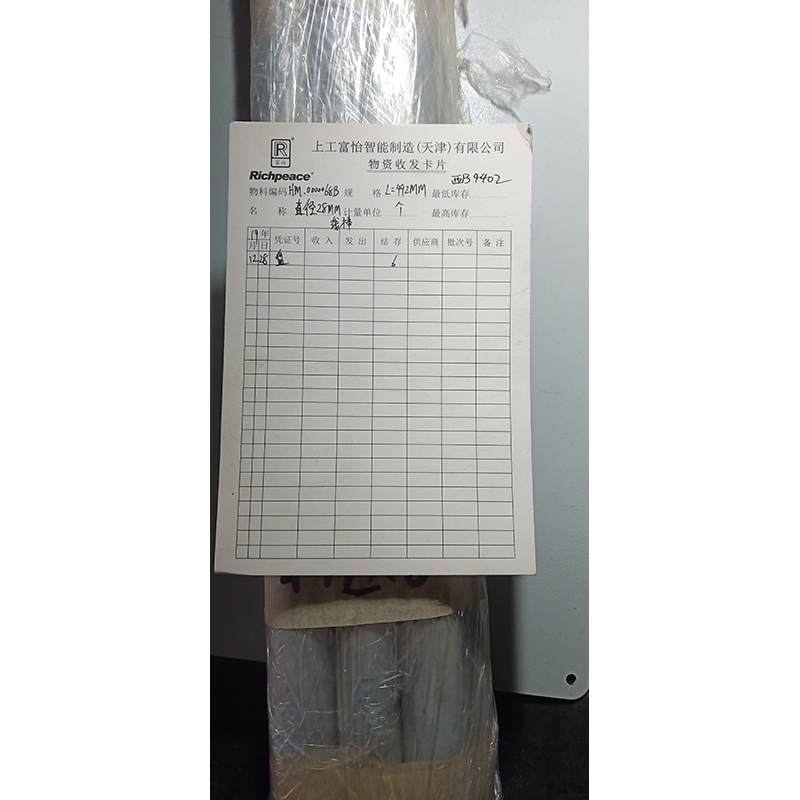 上工富怡智能制造(天津)有限公司
R®
富怡
物资收发卡片
Richpeace®
西B9402
物料编码 HM.0000068B 规 格 L=992MM 最低库存
名 称 直径28MM 计量单位 个 最高库存
19 年 凭证号 收 入 发 出 结 存 供应商 批次号 备 注
月 日
12 28 盘 6